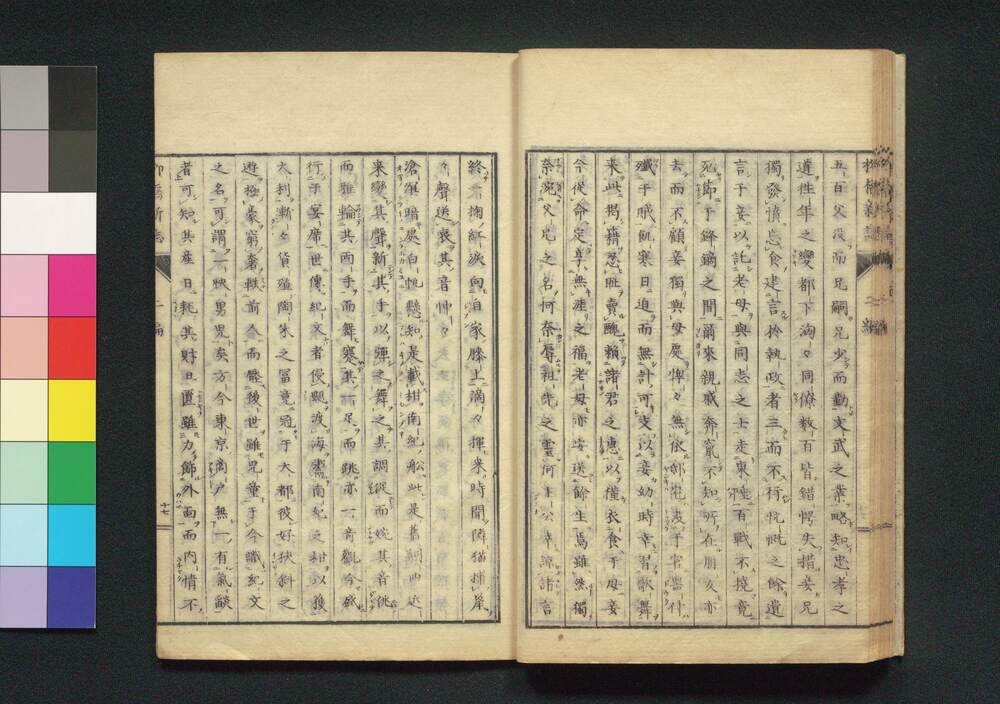 五百父沒而兄嗣兄少而勤文武之業略知忠孝之
道往年之變都下洶々同僚數百皆錯愕失措妾兄
獨發憤忘食建言於執政者三而不行忼慨之餘遺
言于妾以託老母與同志之士走東陲百戰不撓竟
死節于鋒鏑之間爾來親戚奔竄不知所在朋友亦
去而不顧妾獨與母處惸々無依
殲于賊飢寒日迫而無計可支以妾幼時幸習歌舞
來此揭籍忍恥賣醜賴諸君之惠以僅衣食于母妾
今從命定享無涯之福老母亦安送餘生焉雖然獨
奈冤父兄之名何奈辱祖先之靈何
終者掬紅淚向自家膝上滴々揮來時聞隣猫捕鼠
々聲送哀其音忡々
滄溟暗處白帆懸知是載柑南紀船此是舊詞而近
來變其聲新其手以煙之舞之其調從而婉其音從
而雅輪其兩手而舞蹇其前足而跳亦一奇觀今盛
行于宴席世傳紀文者侵颶波海齎南紀之柑以獲
大利漸々貨殖陶朱之富竟冠于大都彼好狹斜之
遊極豪窮奢軼前今而壓後世雖兒童于今識紀文
之名可謂一快男兒矣方今東京商戶無一有氣燄
者可知其產日耗其財日匱雖力飾外面而內情不
柳橋新誌
二編
十七